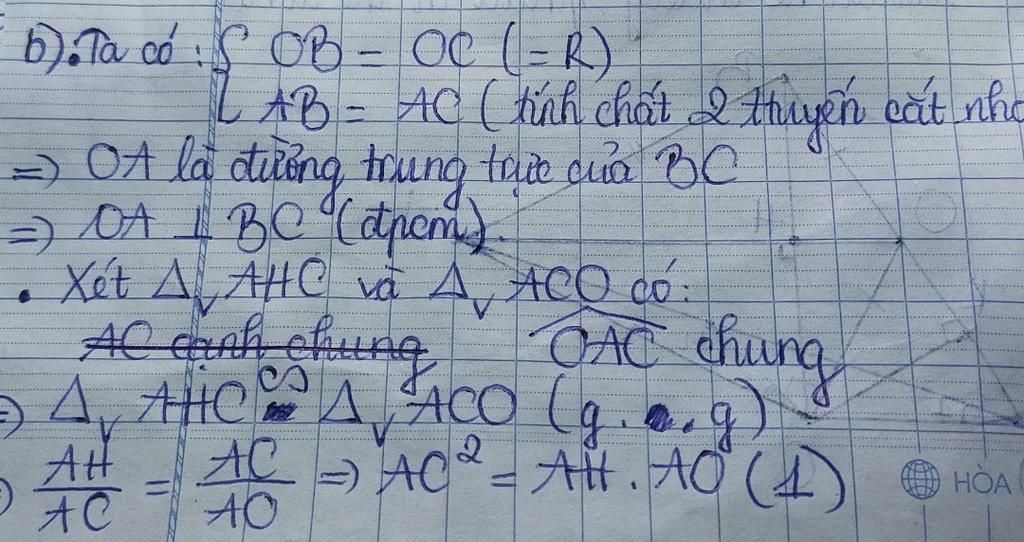 b). Ta có : { OB = OC (= R)
AB = AC ( tính chất 2 ttuyến cắt nha
=> OA là đường trung trực của BC
=> OA ⊥ BC (đpcm).
• Xét Δv AHC và Δv ACO có:
AC cạnh chung OAC chung
=> Δv AHC ∽ Δv ACO (g.g)
AH/AC = AC/AO => AC² = AH . AO (1)
HÒA